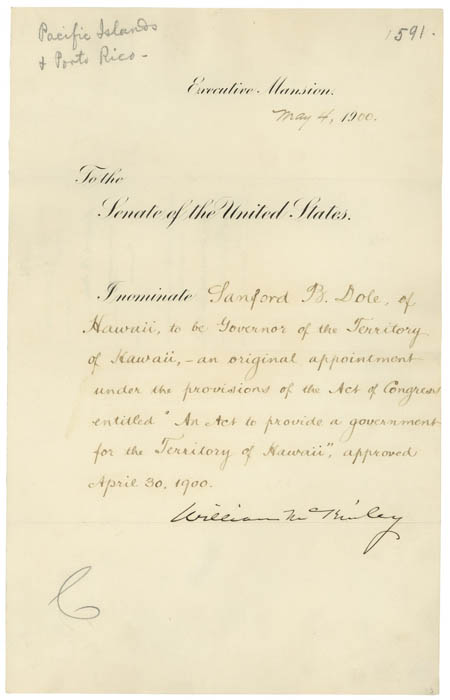 Pacific Islands
& Porto Rico -
1591.
Executive Mansion.
May 4, 1900.
To the
Senate of the United States.
I nominate Sanford B. Dole, of
Hawaii, to be Governor of the Territory
of Hawaii, - an original appointment
under the provisions of the Act of Congress
entitled "An Act to provide a government
for the Territory of Hawaii", approved
April 30, 1900.
William McKinley
C